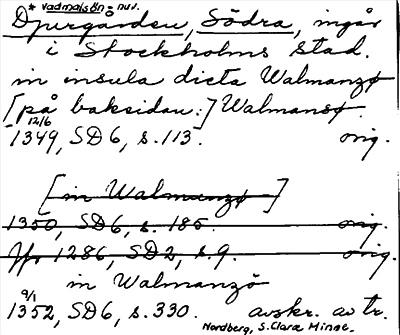 * Vadmalsön = nuv.
Djurgården, Södra, ingår
i Stockholms stad.
in insula dicta Walmanzø
[på baksidan:] Walmansø.
12/6
1349, SD6, s. 113. orig.
[in Walmanzø]
1350, SD6, s. 185. orig.
Jfr 1286, SD2, s. 9. orig.
in Walmanzö
9/1
1352, SD6, s. 330. avskr. av tr.
Nordberg, S. Clara Minne.